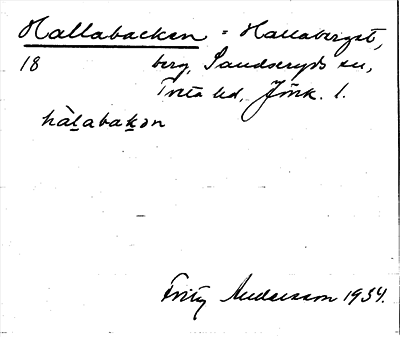 Hallabacken = Hallaberget,
18 berg, Sandseryds sn,
Tveta hd, Jönk. l.
hàlabakən
Fritz Andersson 1934.